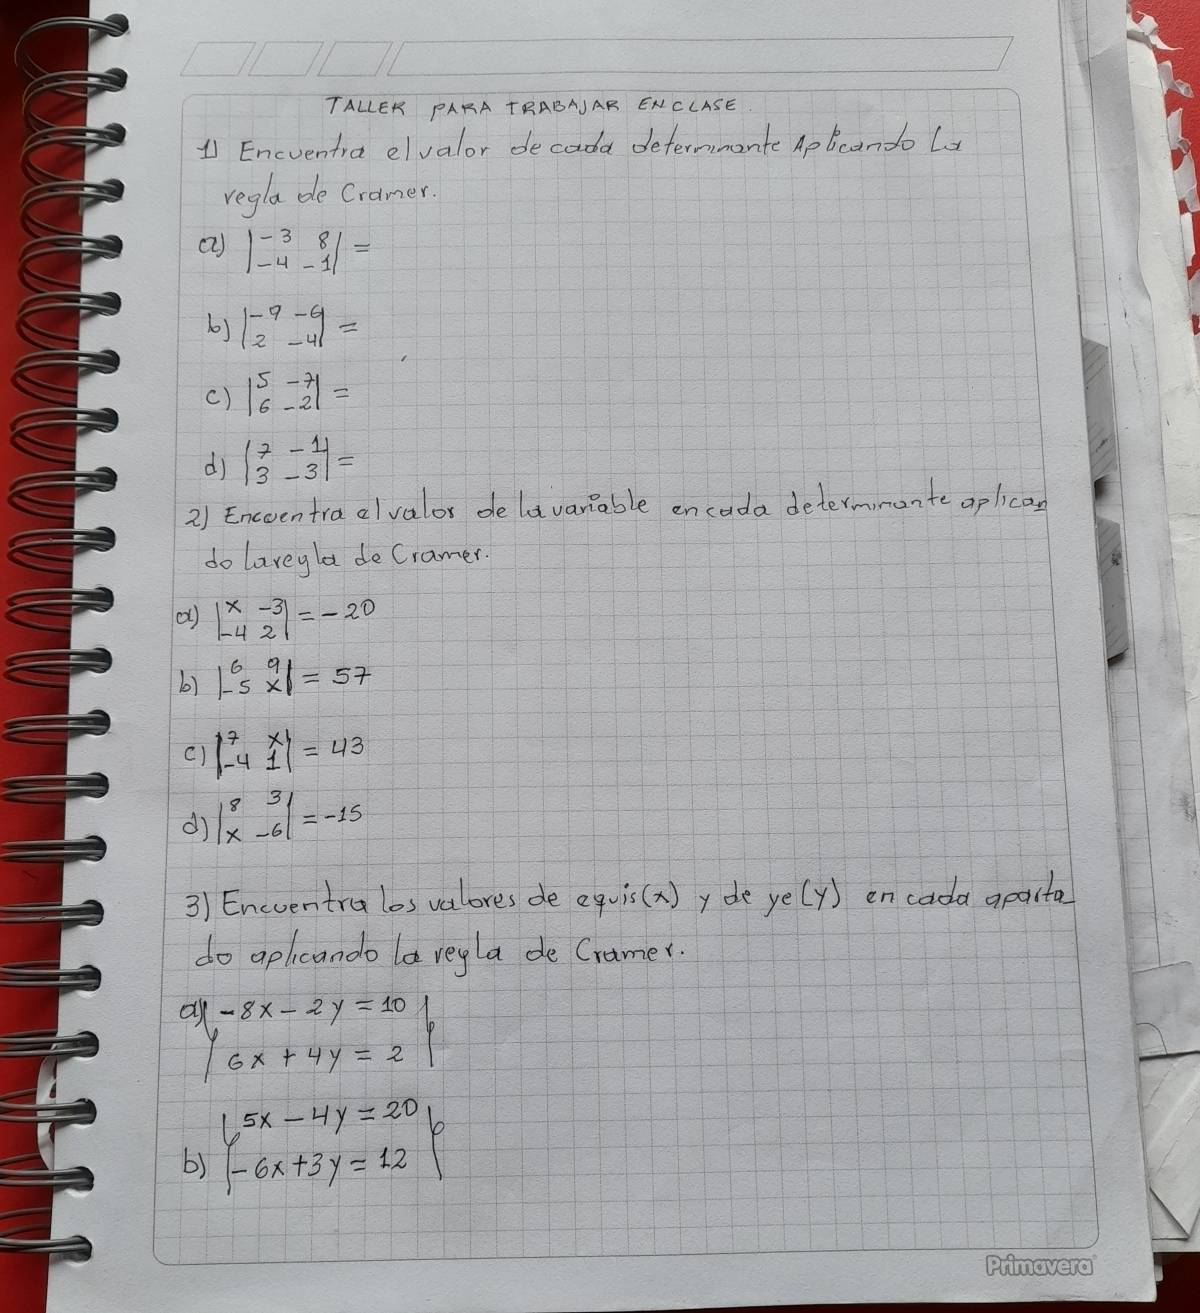 TALLER PARA TRABAJAR EN CLASE.
1) Encuentra el valor de cada determinante Aplicando La
regla de Cramer.
a) |-3 8| =
|-4 -1|
b) |-9 -6| =
|2 -4|
c) |5 -7| =
|6 -2|
d) |7 -1| =
|3 -3|
2) Encuentra el valor de la variable en cada determinante aplican
do la regla de Cramer.
a) |x -3| = -20
|-4 2|
b) |6 9| = 57
|-5 x|
c) |7 x| = 43
|-4 1|
d) |8 3| = -15
|x -6|
3) Encuentra los valores de equis(x) y de ye(y) en cada aparta
do aplicando la regla de Cramer.
a) { -8x - 2y = 10 }
{ 6x + 4y = 2 }
{ 5x - 4y = 20 }
b) { -6x + 3y = 12 }
Primavera